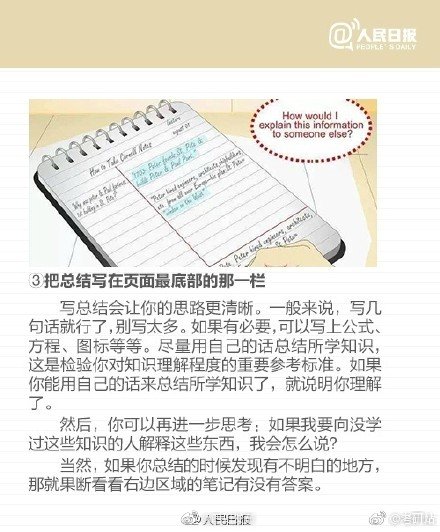 @人民日报
PEOPLE'S DAILY
How would I
explain this information
to someone else?
How to Take Cornell Notes
③把总结写在页面最底部的那一栏
写总结会让你的思路更清晰。一般来说，写几
句话就行了，别写太多。如果有必要，可以写上公式、
方程、图标等等。尽量用自己的话总结所学知识，
这是检验你对知识理解程度的重要参考标准。如果
你能用自己的话来总结所学知识了，就说明你理解
了。
然后，你可以再进一步思考；如果我要向没学
过这些知识的人解释这些东西，我会怎么说？
当然，如果你总结的时候发现有不明白的地方，
那就果断看看右边区域的笔记有没有答案。
@人民日报